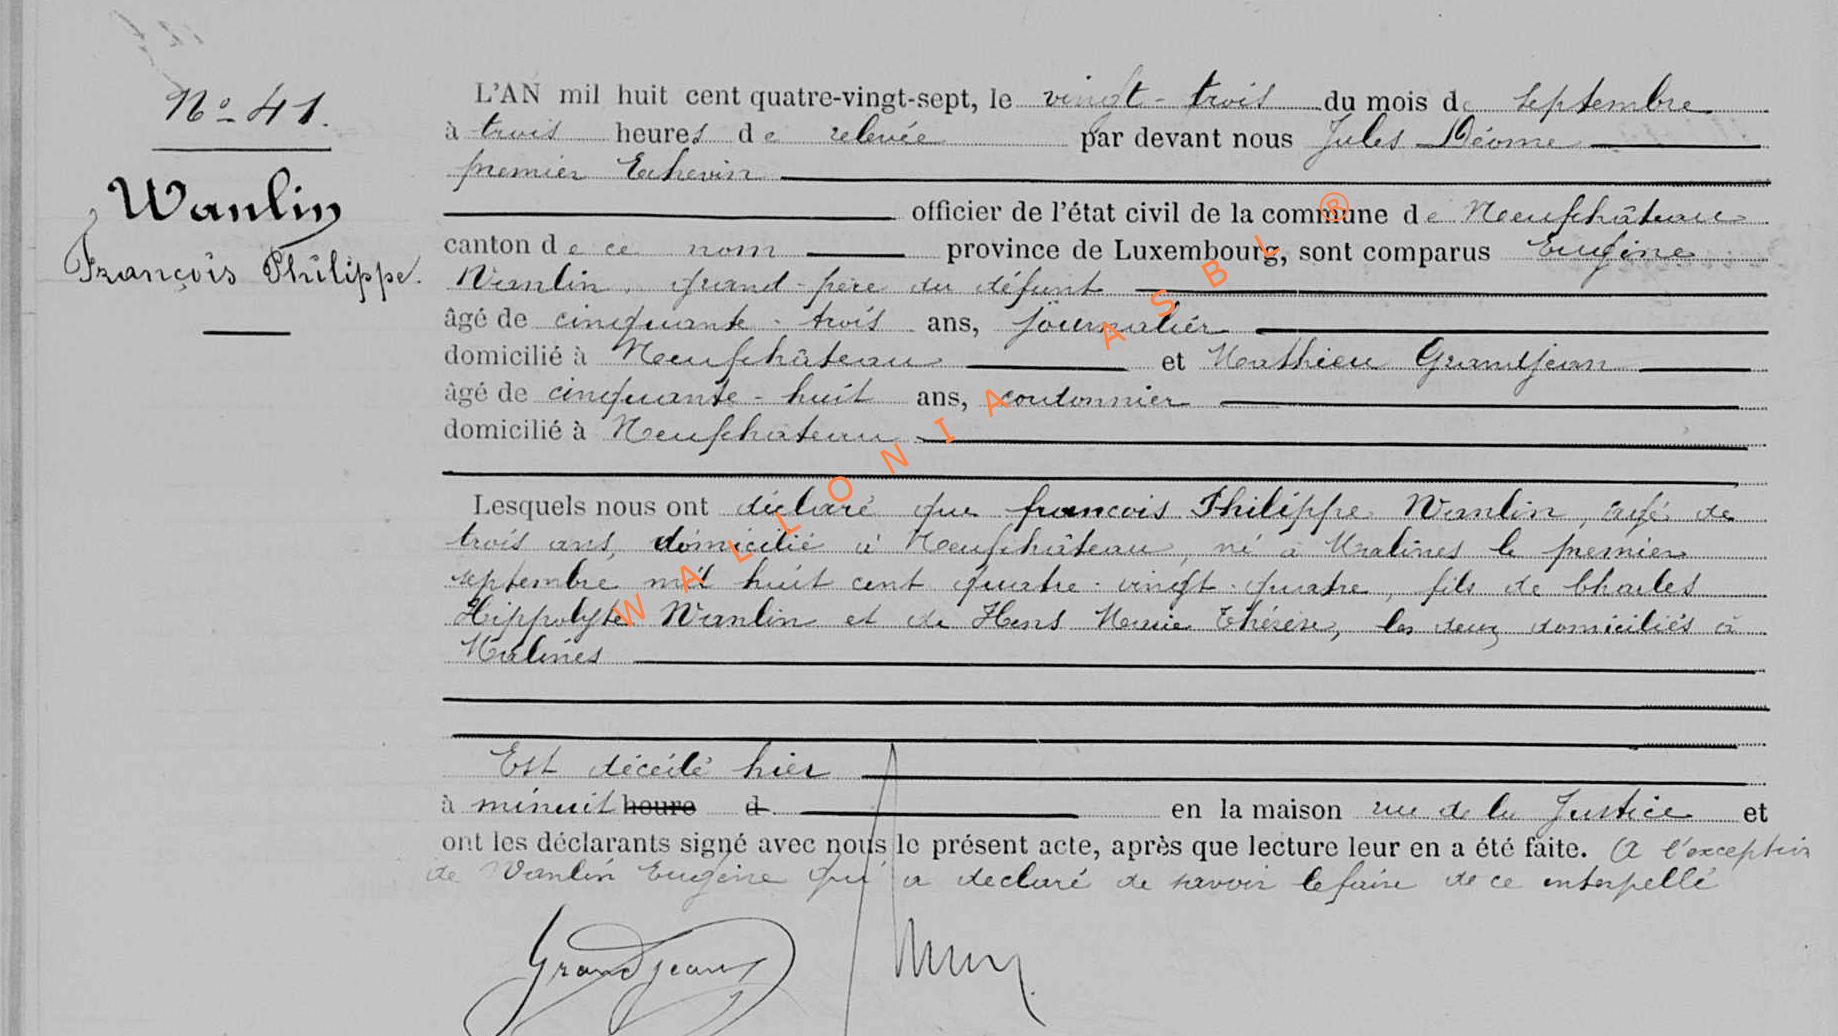 Nº 41.
Wanlin
François Philippe.
L'AN mil huit cent quatre-vingt-sept, le vingt-trois du mois de septembre
à trois heures de relevée par devant nous Jules Déome
premier Echevin
officier de l'état civil de la commune de Neufchâteau
canton de ce nom province de Luxembourg, sont comparus Eugène
Wanlin, grand-père du défunt
âgé de cinquante-trois ans, journalier
domicilié à Neufchâteau et Mathieu Grandjean
âgé de cinquante-huit ans, cordonnier
domicilié à Neufchateau
Lesquels nous ont déclaré que françois Philippe Wanlin, âgé de
trois ans, domicilié à Neufchâteau, né à Malines le premier
septembre mil huit cent quatre-vingt-quatre, fils de Charles
Hippolyte Wanlin et de Hens Marie Thérèse, les deux domiciliés à
Malines
Est décédé hier
à minuit heure d en la maison rue de la Justice et
ont les déclarants signé avec nous le présent acte, après que lecture leur en a été faite. A l'exception
de Wanlin Eugène qui a declaré de savoir le faire de ce interpellé
Grandjean
WALLONIA ASBL ®